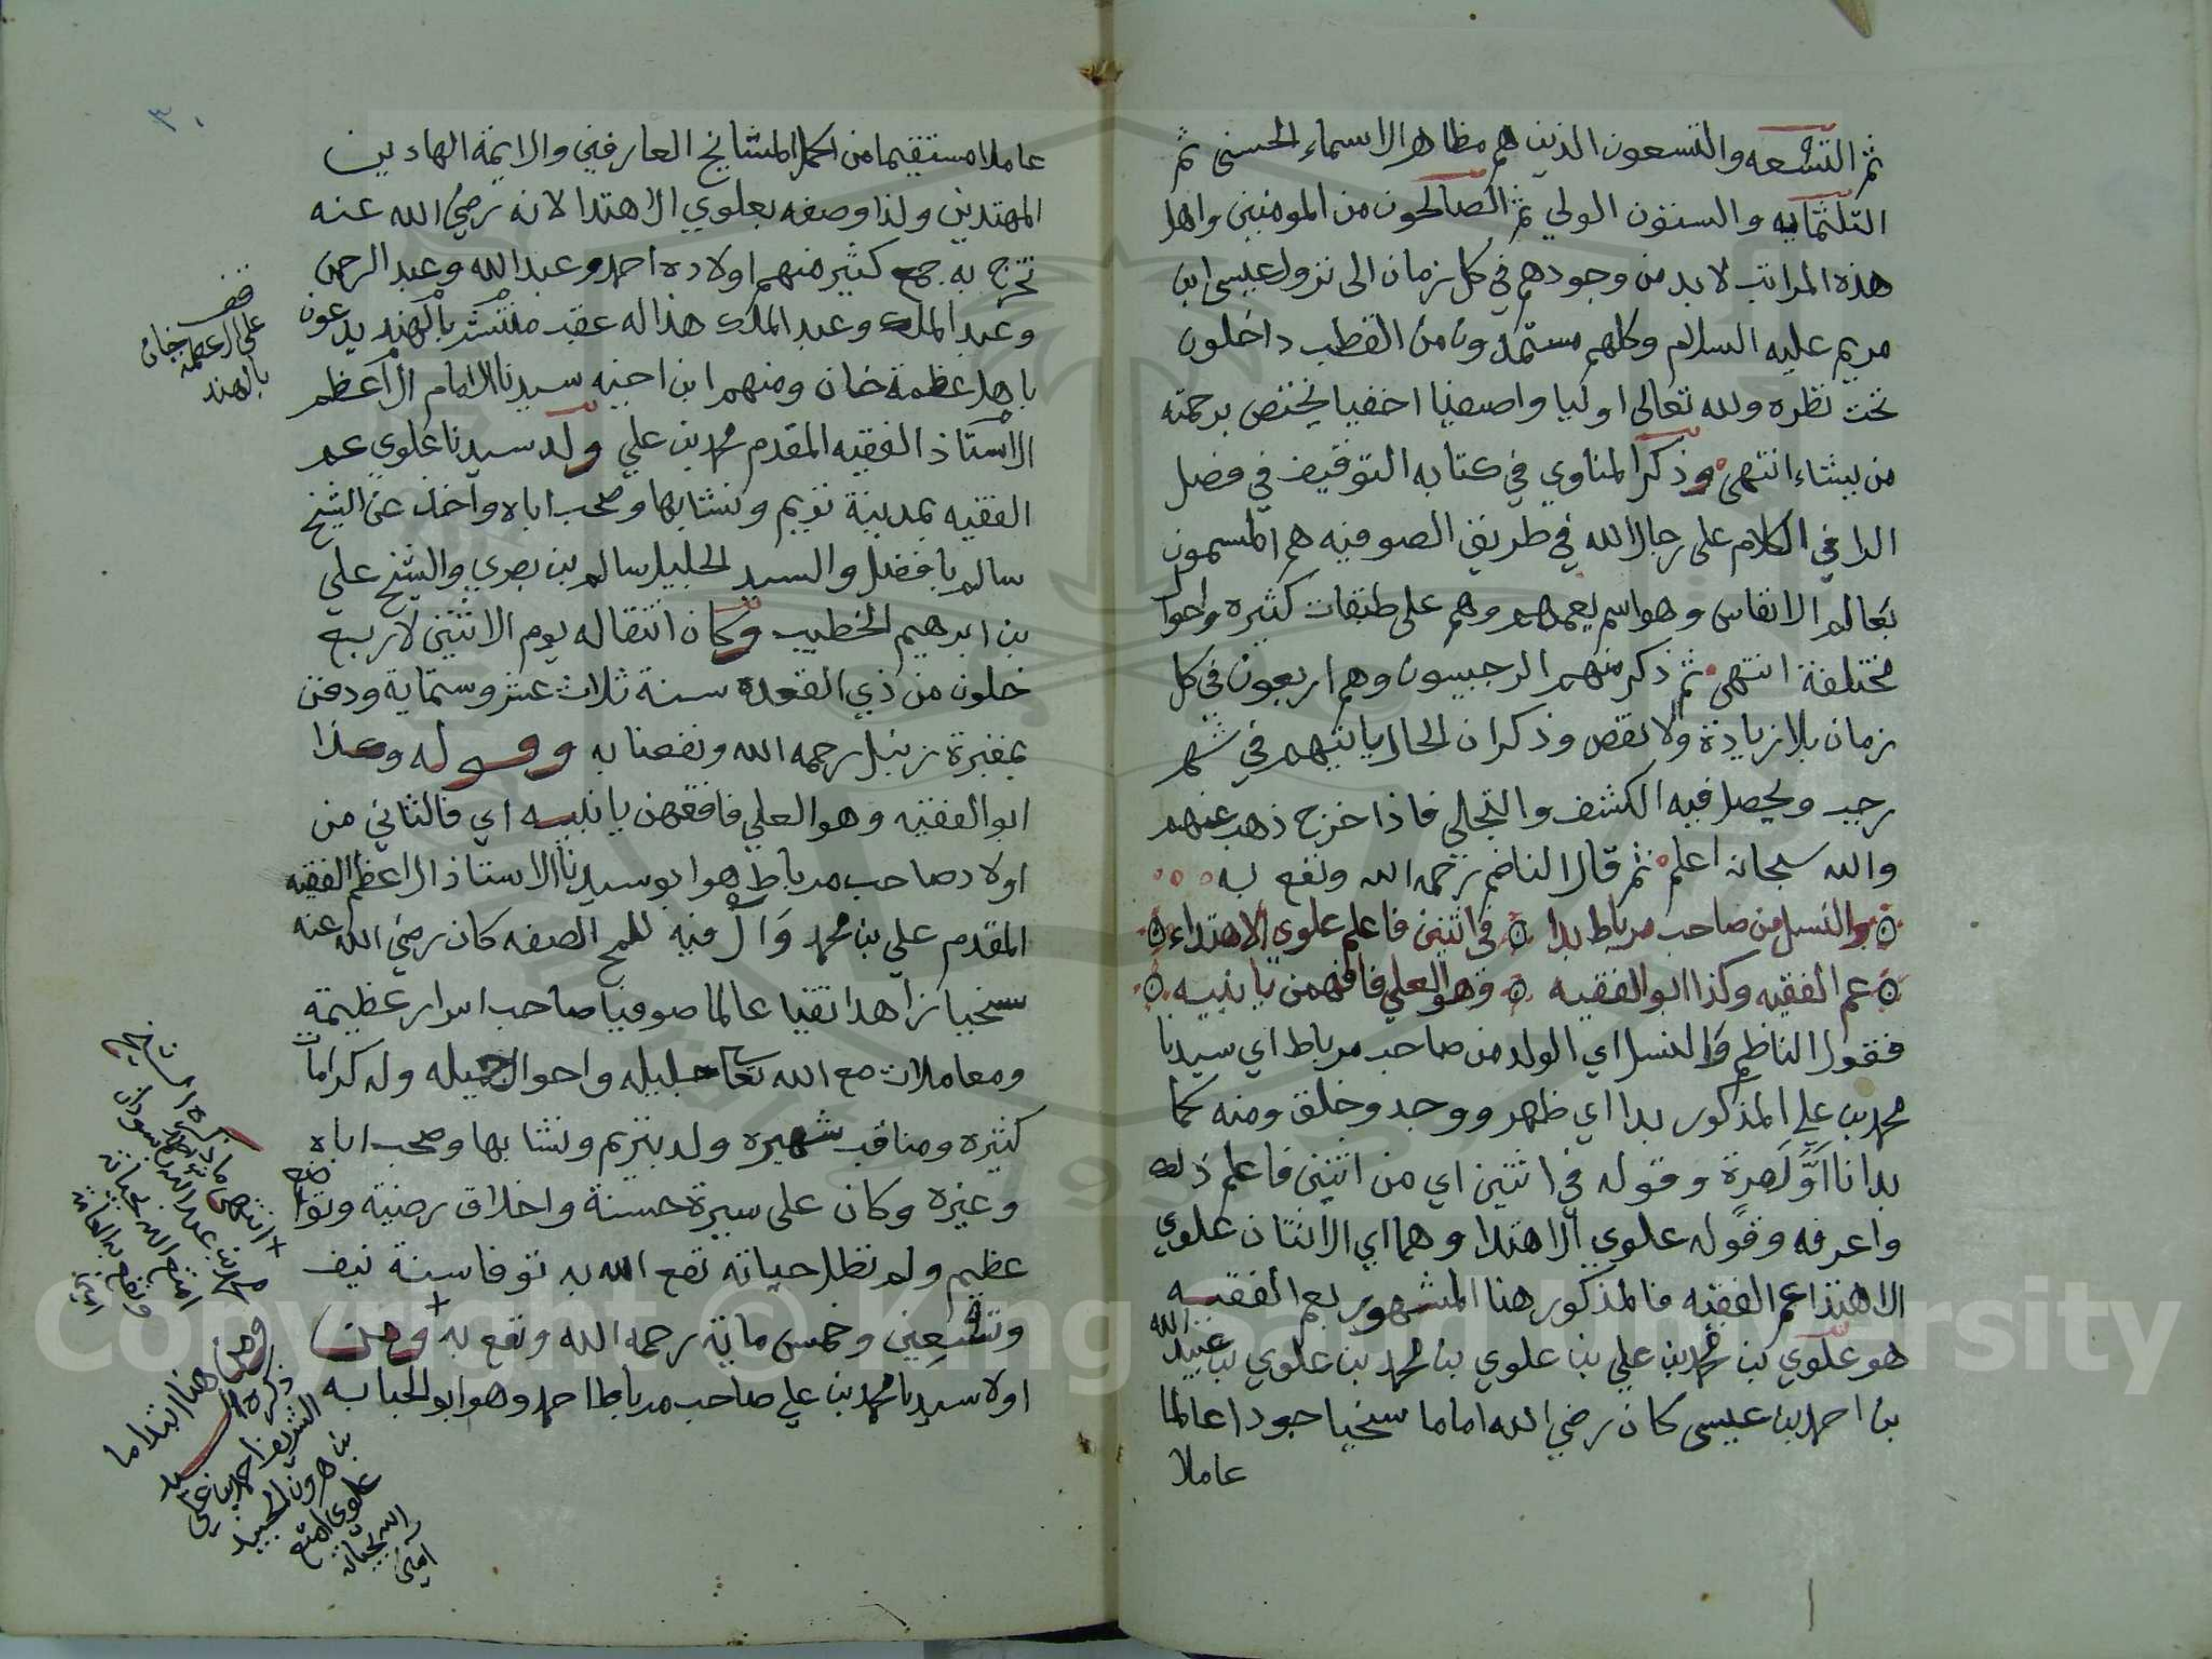 ثم التسعه والتسعون الذين هم مظاهر الاسماء الحسنى ثم
الثلثمايه والستون الولي ثم الصالحون من المومنين واهل
هذه المراتب لا بد من وجودهم في كل زمان الى نزول عيسى ابن
مريم عليه السلام وكلهم مستمدون من القطب داخلون
تحت نظره ولله تعالى اوليا واصفيا اخفيا يختص برحمته
من يشاء انتهى وذكر المناوي في كتابه التوقيف في فصل
الرا في الكلام على رجال الله في طريق الصوفيه هم المسمون
بعالم الانفاس وهو اسم لجميعهم وهم على طبقات كثيره واحوال
مختلفة انتهى ثم ذكر منهم الرجبيون وهم اربعون في كل
زمان بلا زيادة ولا نقص وذكر ان الحال ياتيهم في شهر
رجب ويحصل فيه الكشف والتجلي فاذا خرج ذهب عنهم
والله سبحانه اعلم ثم قال الناضم رحمه الله ونفع به
والنسل من صاحب مرباط بدا في اثنين فاعلم علوي الاهتداء
عم الفقيه وكذا ابو الفقيه وهو العلي فافهمن يا نبيه
فقول الناظم والنسل اي الولد من صاحب مرباط اي سيدنا
محمد بن علي المذكور بدا اي ظهر ووجد وخلق ومنه كما
بدانا اوَّل مرة وقوله في اثنين اي من اثنين فاعلم ذلك
واعرفه وقوله علوي الاهتدا وهما اي الاثنان علوي
الاهتدا عم الفقيه فالمذكور هنا المشهور بعم الفقيه
هو علوي بن محمد بن علي بن علوي بن محمد بن علوي بن عبيد الله
بن احمد بن عيسى كان رضي الله اماما سخيا جودا عالما
عاملا
٣٠
عاملا مستقيما من اكمل المشايخ العارفين والايمة الهادين
المهتدين ولذا وصفه بعلوي الاهتدا لانه رضي الله عنه
تخرج به جمع كثير منهم اولاده احمد وعبدالله وعبد الرحمن
وعبد الملك وعبد الملك هذا له عقب منتشر بالهند يدعون
باهل عظمة خان ومنهم ابن اخيه سيدنا الامام الاعظم
الاستاذ الفقيه المقدم محمد بن علي ولد سيدنا علوي عم
الفقيه بمدينة تريم ونشا بها وصحب اباه واخذ عن الشيخ
سالم بافضل والسيد الجليل سالم بن بصري والشيخ علي
بن ابرهيم الخطيب وكان انتقاله يوم الاثنين لاربع
خلون من ذي القعدة سنة ثلاث عشر وستماية ودفن
بمقبرة زنبل رحمه الله ونفعنا به وقوله وكذا
ابو الفقيه وهو العلي فافهمن يا نبيه اي فالثاني من
اولاد صاحب مرباط هو ابو سيدنا الاستاذ الاعظم الفقيه
المقدم علي بن محمد وَالْ فيه للمح الصفه كان رضي الله عنه
سخيا زاهدا تقيا عالما صوفيا صاحب اسرار عظيمة
ومعاملات مع الله تعالى جليله واحوال جميله وله كرامات
كثيره ومناقب شهيره ولد بتريم ونشا بها وصحب اباه
وغيره وكان على سيرة حسنة واخلاق رضية وتواضع
عظيم ولم تطل حياته نفع الله به توفا سنة نيف
وتسعين وخمس ماية رحمه الله ونفع به ومن
اولا سيدنا محمد بن علي صاحب مرباط احمد وهو ابو الحبابه
قف
على ال عظمة خان
بالهند
انتهى ما ذكره الشيخ
محمد بن عبدالله باسودان
امتع الله بحياته
امين
ومن هنا ابتدا ما
ذكره السيد
الشريف احمد بن علي
بن هرون الجنيد
علوي امتع
الله بحياته
امين